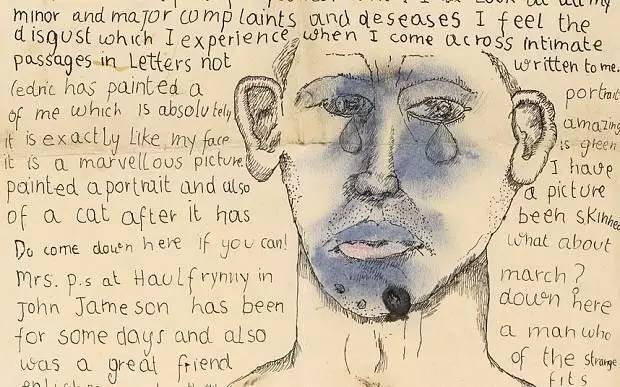 minor and major complaints and deseases I feel the
disgust which I experience when I come across intimate
passages in Letters not written to me.
Cedric has painted a portrait
of me which is absolutely amazing
it is exactly like my face is green
it is a marvellous picture I have
painted a portrait and also a picture
of a cat after it has been skinned
Do come down here if you can! what about
Mrs. p.s at Haulfrynny in march?
John Jameson has been down here
for some days and also a man who
was a great friend of the strange
fits